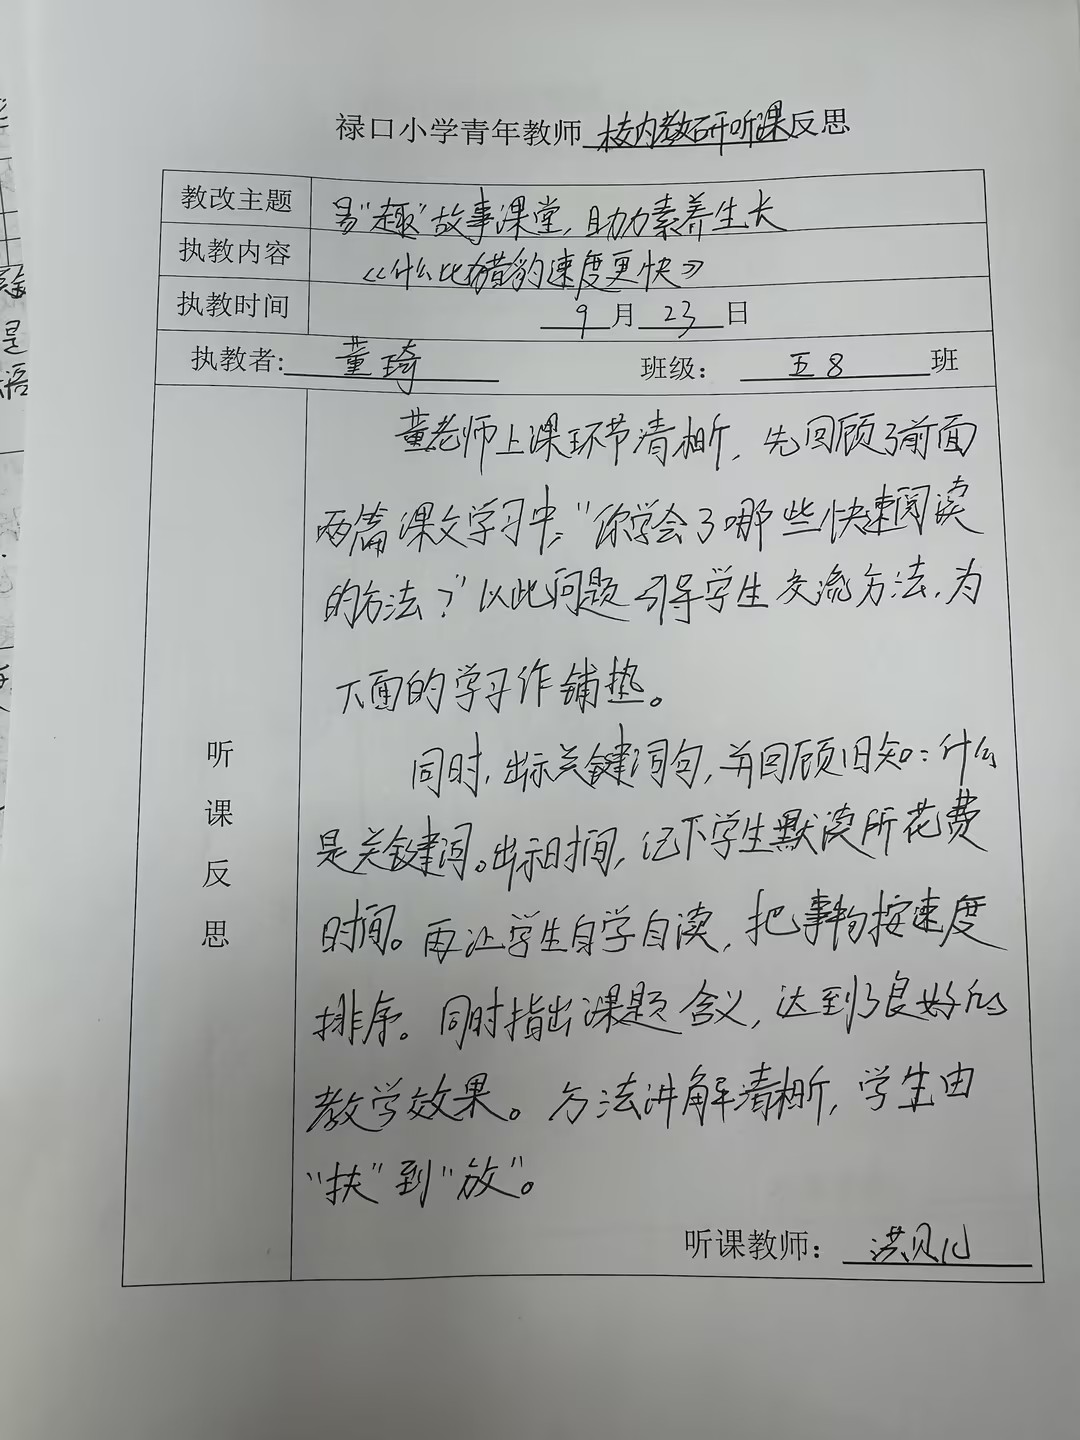 禄口小学青年教师校内教研听课反思
教改主题 易“趣”故事课堂，助力素养生长
执教内容 《什么比猎豹速度更快》
执教时间 9月23日
执教者：董琦 班级：五8班
听课反思
董老师上课环节清晰，先回顾了前面
两篇课文学习中，“你学会了哪些快速阅读
的方法？”以此问题引导学生交流方法，为
下面的学习作铺垫。
同时，出示关键词句，并回顾旧知：什么
是关键词。出示时间，记下学生默读所花费
时间。再让学生自学自读，把事物按速度
排序。同时指出课题含义，达到了良好的
教学效果。方法讲解清晰，学生由
“扶”到“放”。
听课教师：洪贝儿